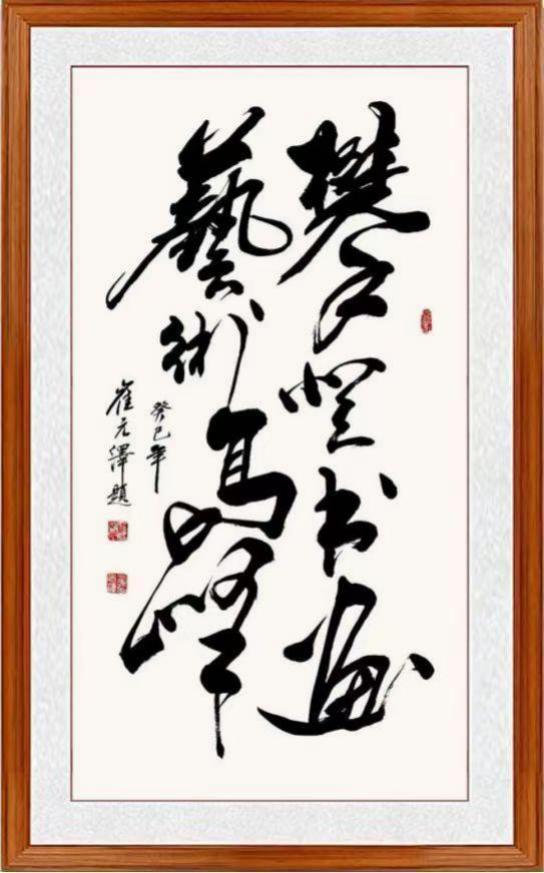 攀登书画
藝術高峰
癸巳年
崔元泽題